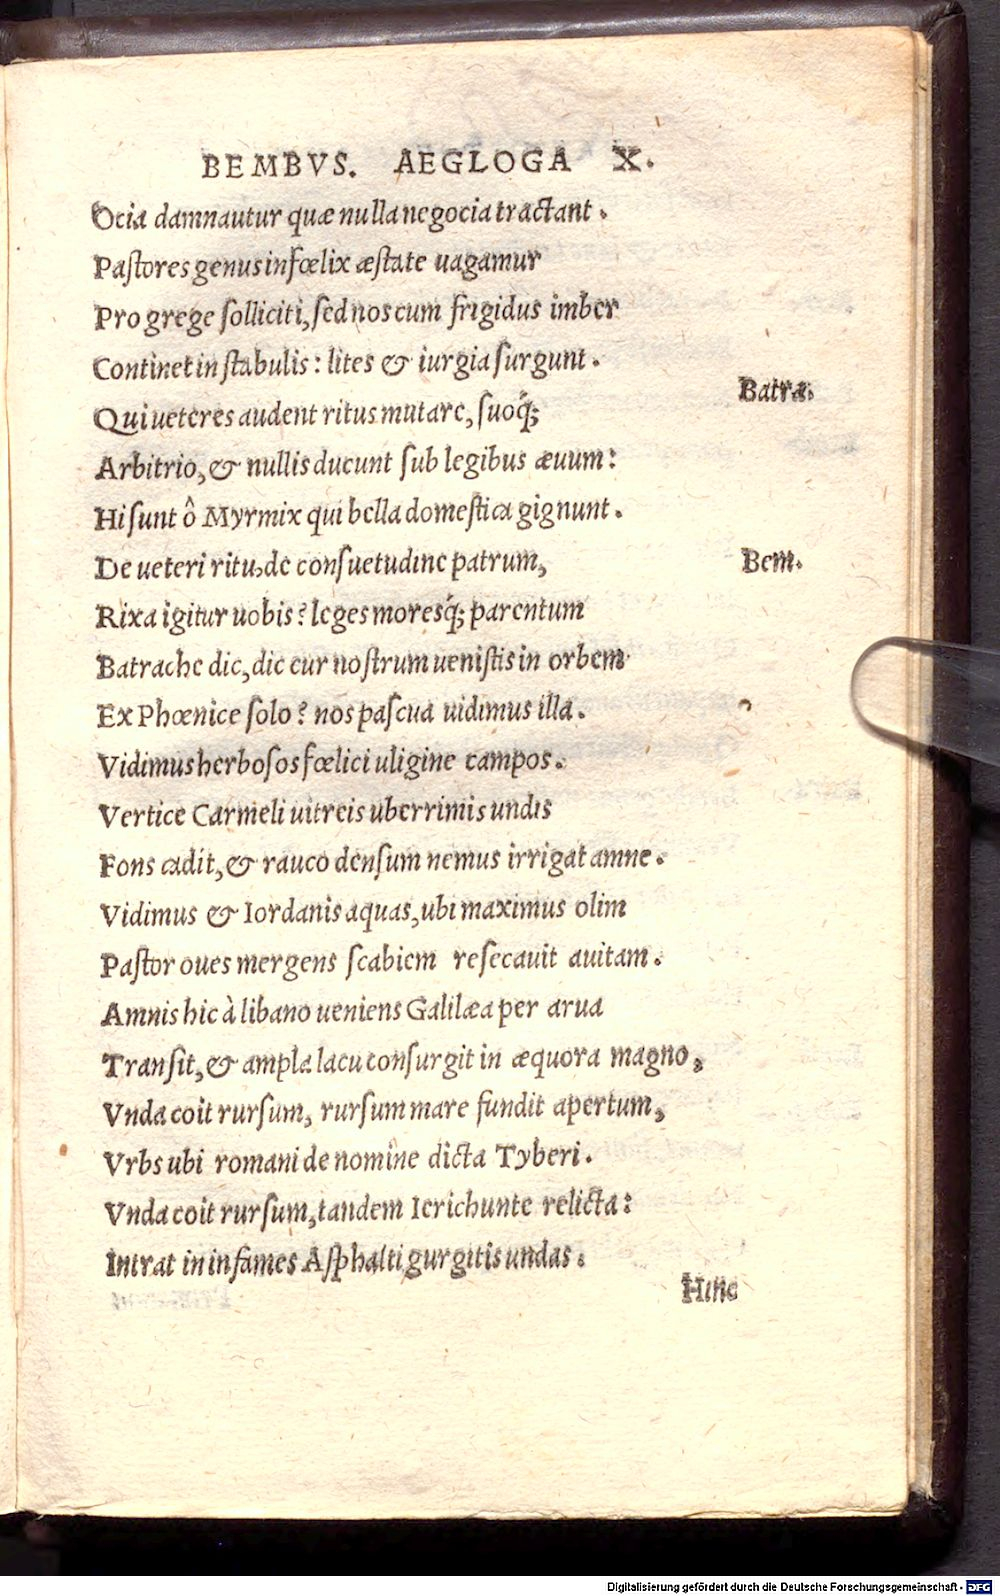 BEMBVS. AEGLOGA X.
Ocia damnautur quæ nulla negocia tractant.
Paſtores genus infœlix æſtate uagamur
Pro grege ſolliciti, ſed nos cum frigidus imber
Continet in ſtabulis: lites & iurgia ſurgunt.
Batra.
Qui ueteres audent ritus mutare, ſuoq́;
Arbitrio, & nullis ducunt ſub legibus æuum:
Hi ſunt ô Myrmix qui bella domeſtica gignunt.
De ueteri ritu, de conſuetudine patrum,
Bem.
Rixa igitur uobis? leges moresq́; parentum
Batrache dic, dic cur noſtrum ueniſtis in orbem
Ex Phœnice ſolo? nos paſcua uidimus illa.
Vidimus herboſos fœlici uligine campos.
Vertice Carmeli uitreis uberrimis undis
Fons cadit, & rauco denſum nemus irrigat amne.
Vidimus & Iordanis aquas, ubi maximus olim
Paſtor oues mergens ſcabiem reſecauit auitam.
Amnis hic à libano ueniens Galilæa per arua
Tranſit, & ampla lacu conſurgit in æquora magno,
Vnda coit rurſum, rurſum mare fundit apertum,
Vrbs ubi romani de nomine dicta Tyberi.
Vnda coit rurſum, tandem Ierichunte relicta:
Intrat in infames Aſphalti gurgitis undas.
Hinc
Digitalisierung gefördert durch die Deutsche Forschungsgemeinschaft - DFG